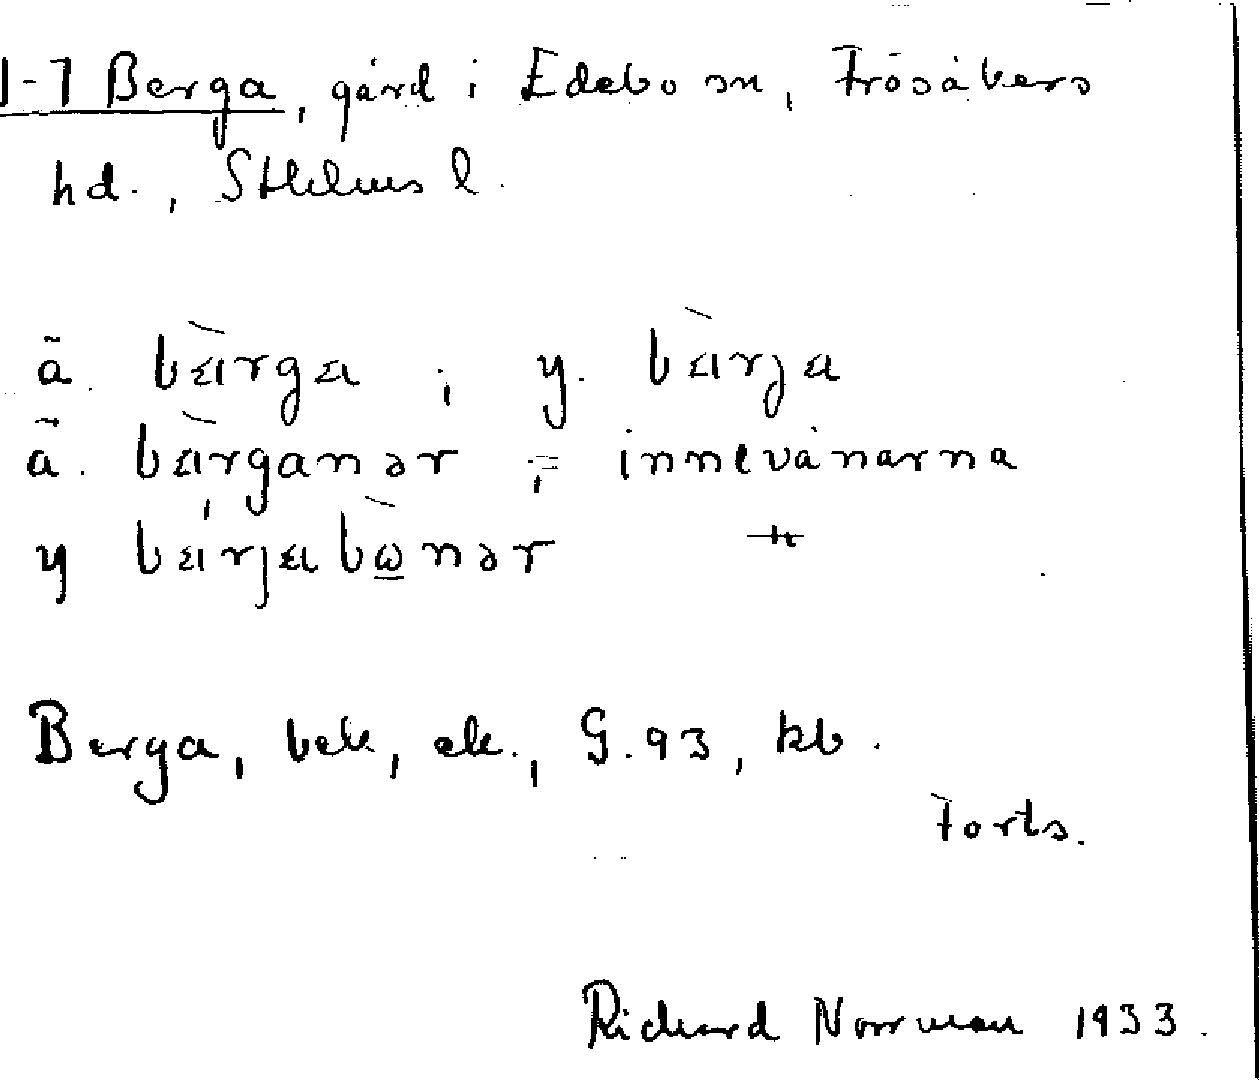 1-7 Berga, gård i Edebo sn, Frösåkers
hd., Sthlms l.
ä. bärga ; y. bärja
ä. bärganər ; = innevånarna
y bärjabωnər
Berga, beb, ek., G. 93, kb.
Forts.
Richard Norrman 1933.